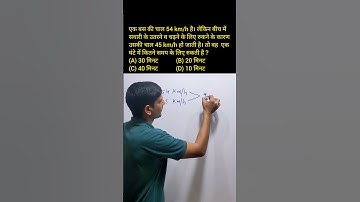 एक बस की चाल 54 km/h है। लेकिन बीच में
सवारी के उतरने व चढ़ने के लिए रुकने के कारण
उसकी चाल 45 km/h हो जाती है। तो वह एक
घंटे में कितने समय के लिए रुकती है ?
(A) 30 मिनट (B) 20 मिनट
(C) 40 मिनट (D) 10 मिनट
54 Km/h
Km/h